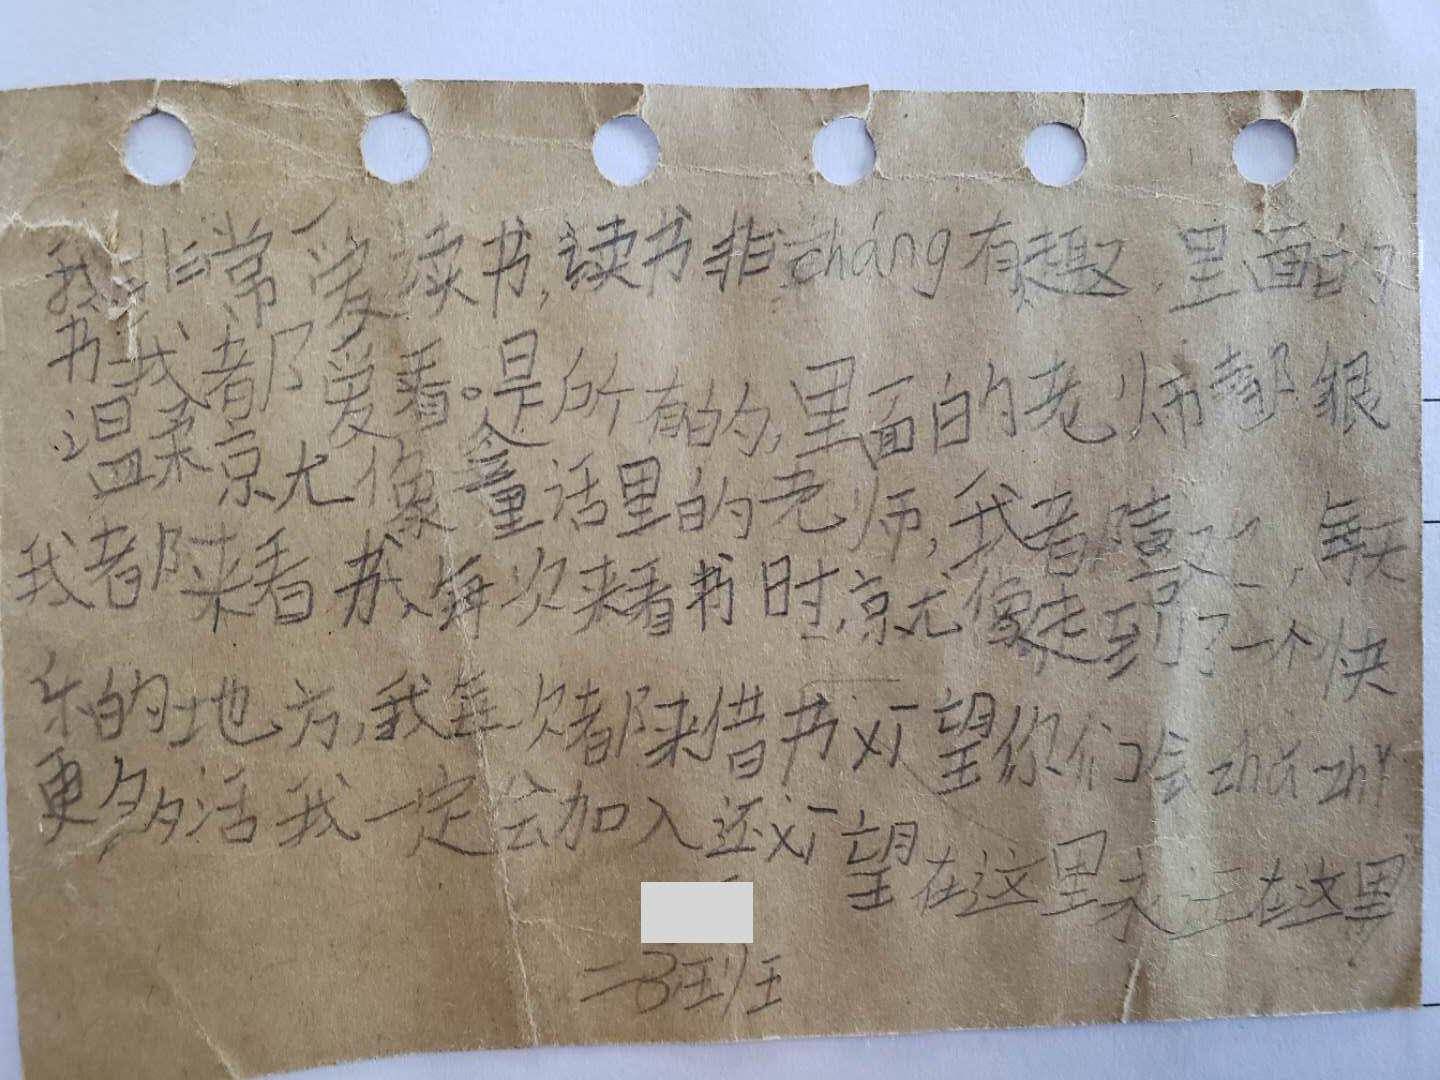 我非常爱读书,读书非cháng有趣,里面的
书我都爱看。是所有的,里面的老师都很
温柔京尤像童话里的老师,我都 ,每天
我都来看书,每次来看书时,京尤像走到了一个快
乐的地方,我每次都来借书 望你们会zhǔ zhī
更多活我一定会加入还 望在这里永远在这里
二3班